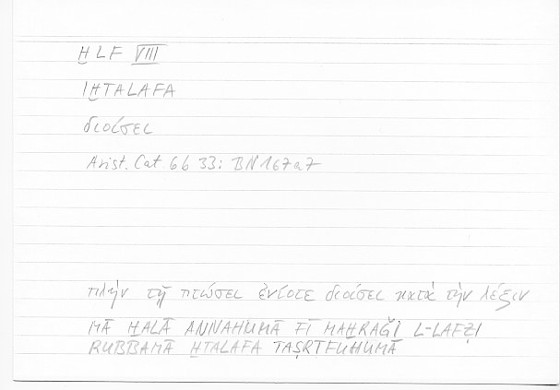 H̲LF VIII
IH̲TALAFA
διοίσει
Arist. Cat 6b 33: BN 167a7
πλὴν τῇ πτώσει ἐνίοτε διοίσει κατὰ τὴν λέξιν
MĀ H̲ALĀ ANNAHUMĀ FĪ MAH̲RAǦI L-LAFẒI
RUBBAMĀ H̲TALAFA TAṢRĪFUHUMĀ